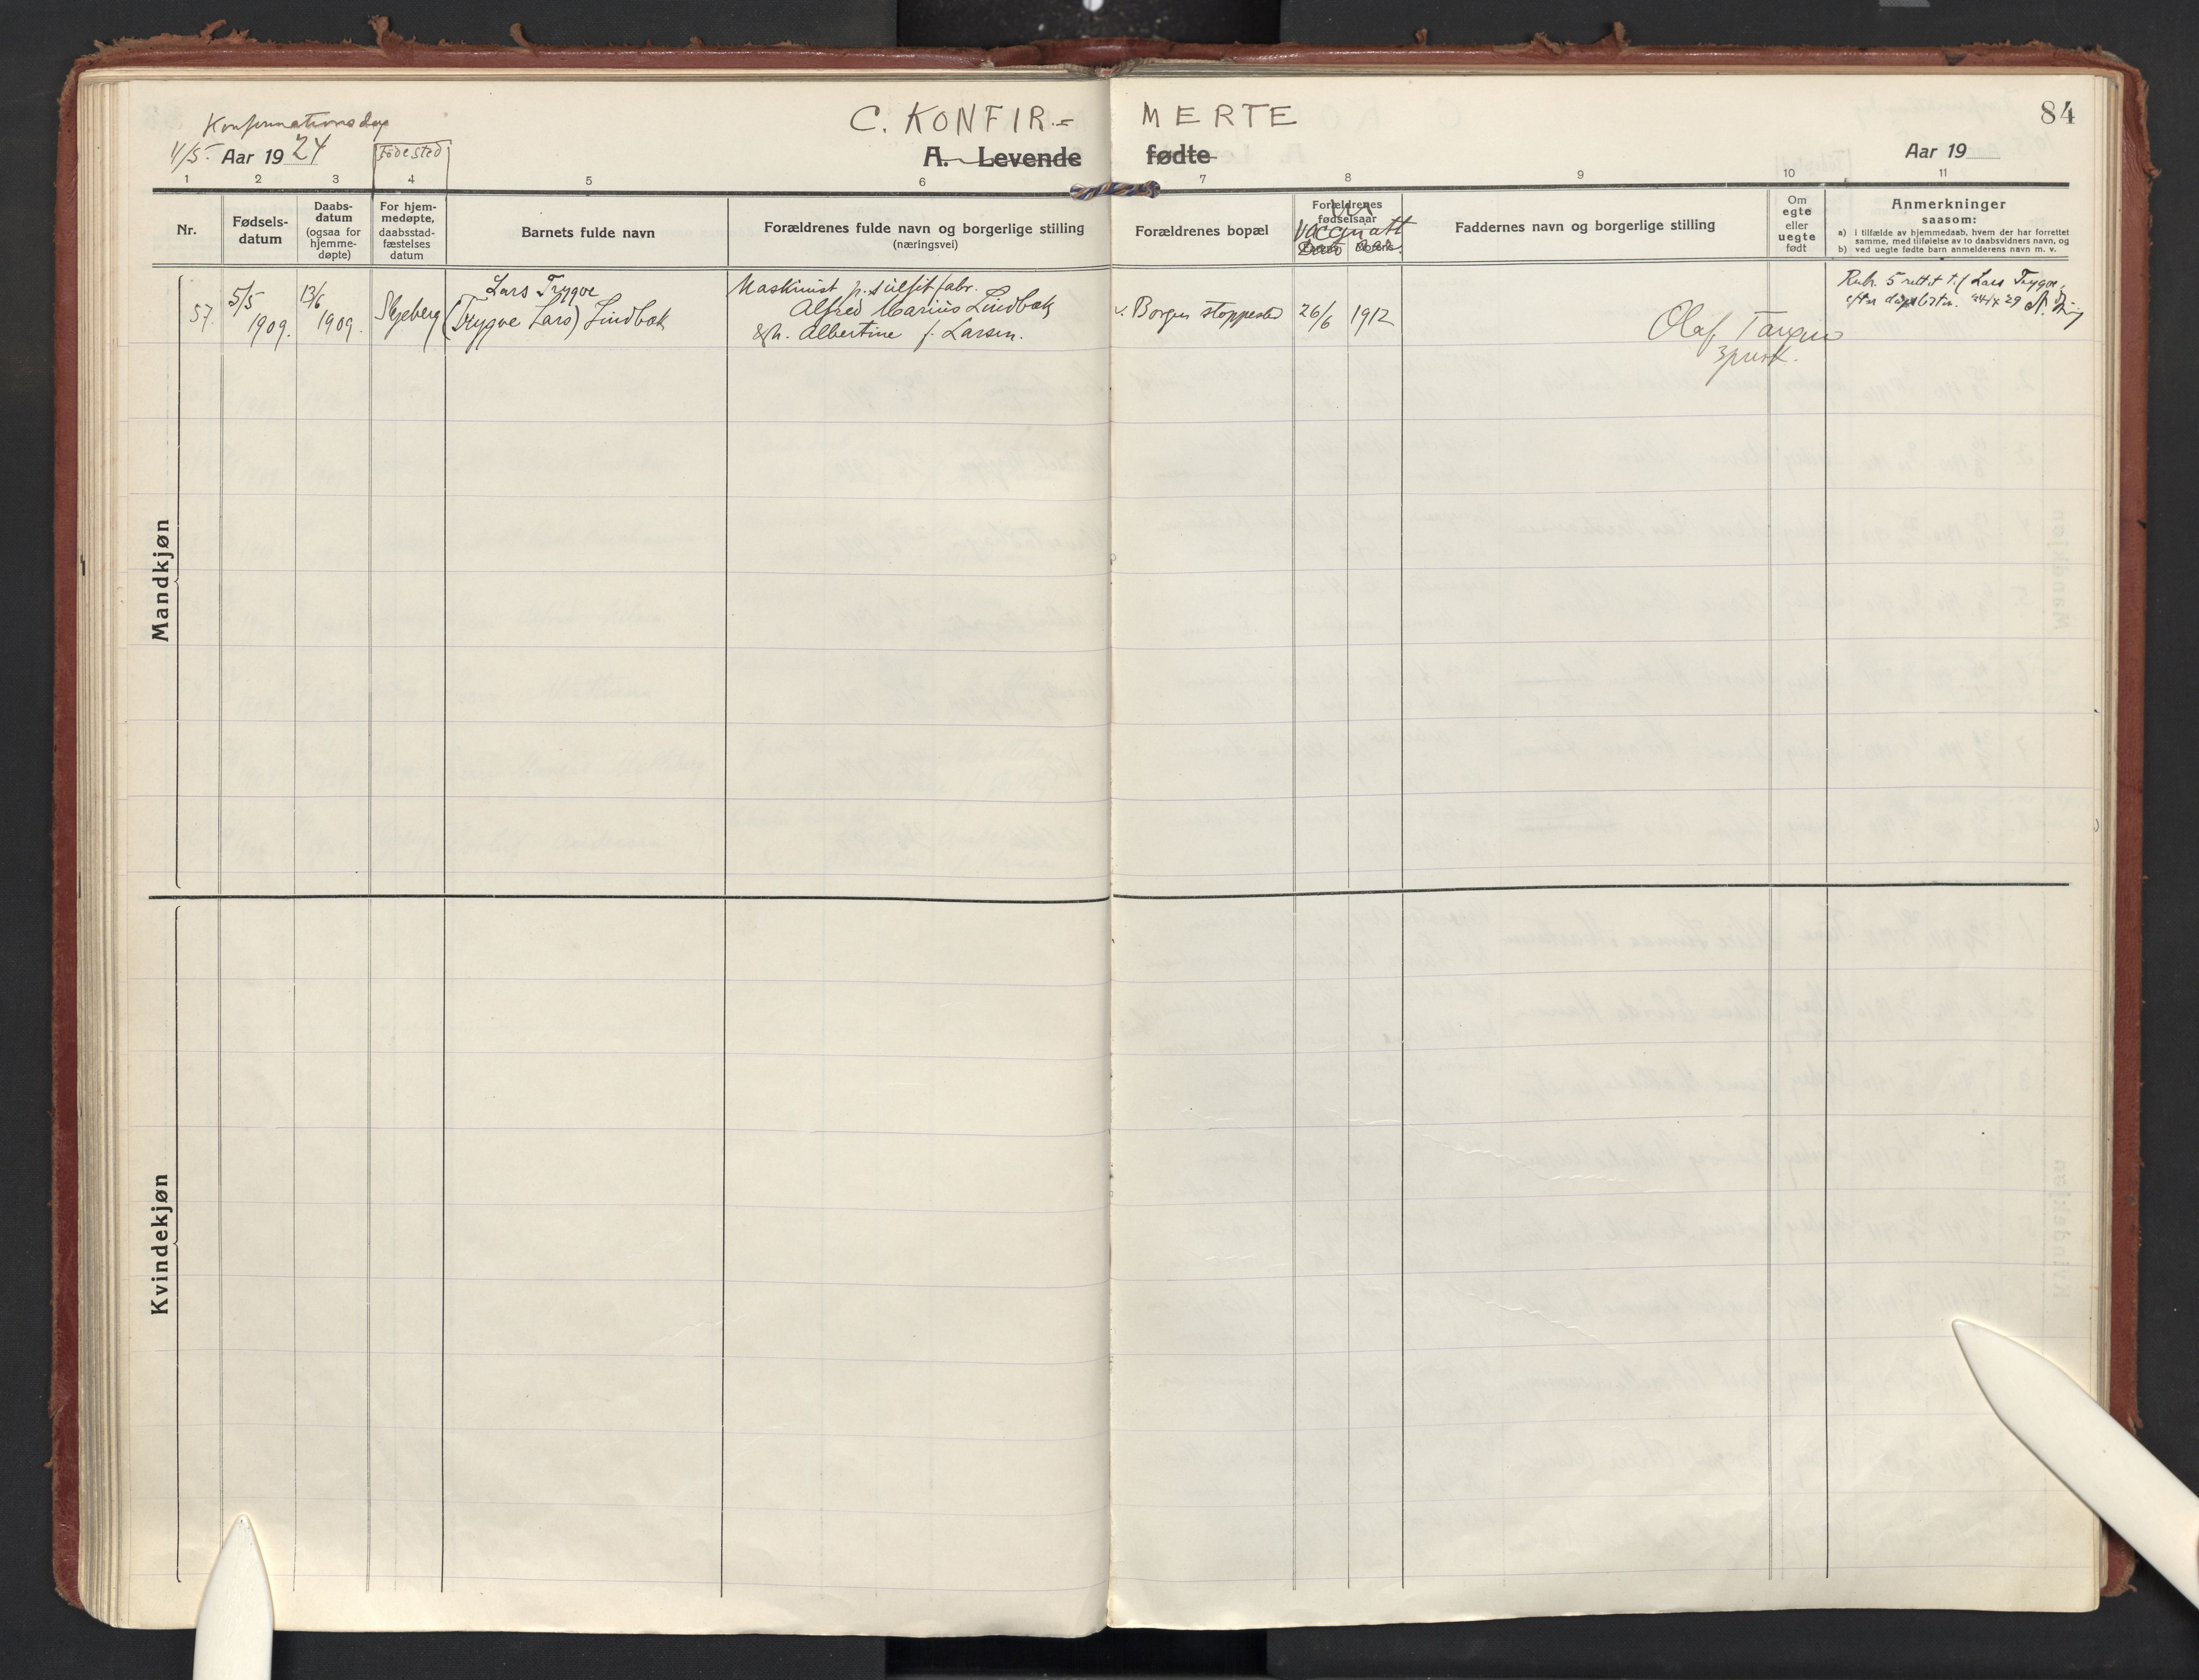 C. KONFIR.= MERTE
84
Konfirmationsdag
1/5. Aar 1924
Fødested
A. Levende fødte
Aar 19
1 2 3 4 5 6 7 8 9 10 11
Nr.
Fødsels-
datum
Daabs-
datum
(ogsaa for
hjemme-
døpte)
For hjem-
medøpte,
daabsstad-
fæstelses
datum
Barnets fulde navn
Forældrenes fulde navn og borgerlige stilling
(næringsvei)
Forældrenes bopæl
Forældrenes
fødselsaar
Faddernes navn og borgerlige stilling
Om
egte
eller
uegte
født
Anmerkninger
saasom:
a) i tilfælde av hjemmedaab, hvem der har forrettet
samme, med tilføielse av to daabsvidners navn, og
b) ved uegte fødte barn anmelderens navn m. v.
Mandkjøn
57.
5/5
1909.
13/6
1909.
Skjeberg
Lars Trygve
(Trygve Lars) Lindbæk
Maskinist p. sulfitfabr.
Alfred Marius Lindbæk
&h. Albertine f. Larsen.
v. Borgen stoppested
26/6 1912
Olaf
Rubr. 5 rettet til Lars Trygve,
efter 24/x 29
Kvindekjøn